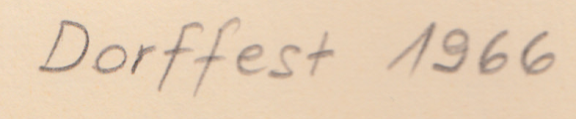 Dorffest 1966